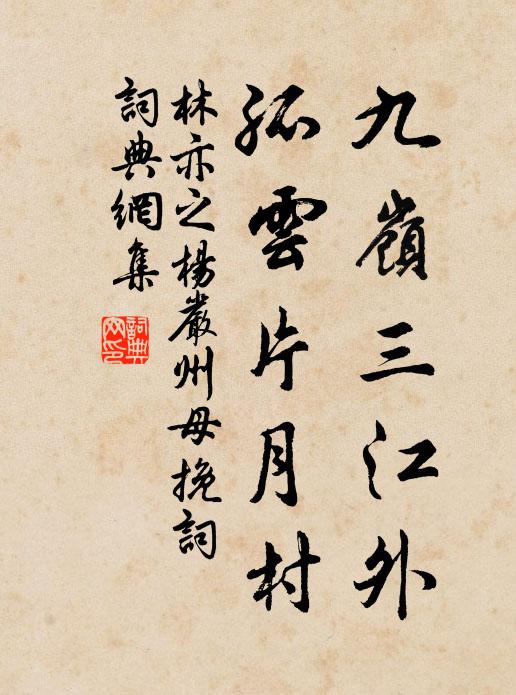 九嶺三江外
孤雲片月村
林亦之楊嚴州母挽詞
詞典網集
詞典網印